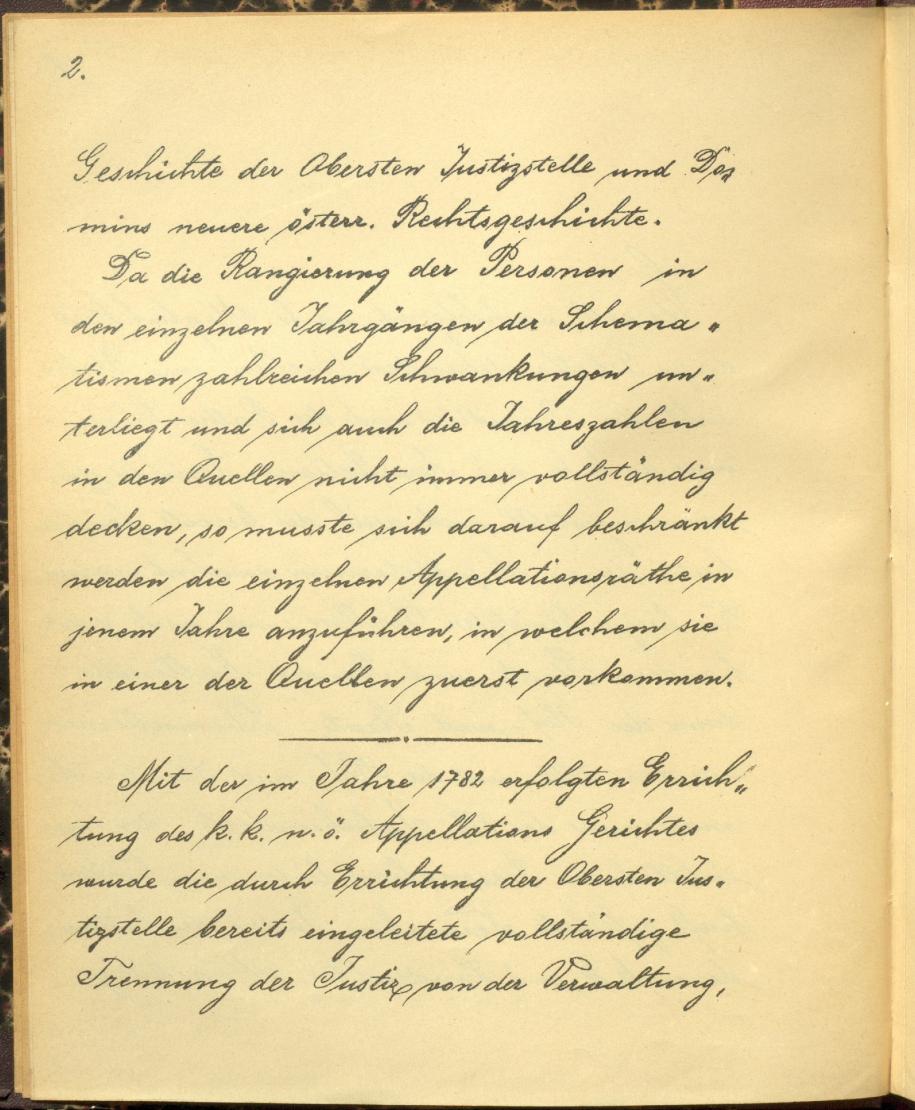 2.
Geschichte der Obersten Justizstelle und Do„
mins neuere österr. Rechtsgeschichte.
Da die Rangierung der Personen in
den einzelnen Jahrgängen der Schema„
tismen zahlreichen Schwankungen un„
terliegt und sich auch die Jahreszahlen
in den Quellen nicht immer vollständig
decken, so musste sich darauf beschränkt
werden die einzelnen Appellationsräthe in
jenem Jahre anzuführen, in welchem sie
in einer der Quellen zuerst vorkommen.
Mit der im Jahre 1782 erfolgten Errich„
tung des k. k. n. ö. Appellations Gerichtes
wurde die durch Errichtung der Obersten Jus„
tizstelle bereits eingeleitete vollständige
Trennung der Justiz von der Verwaltung,